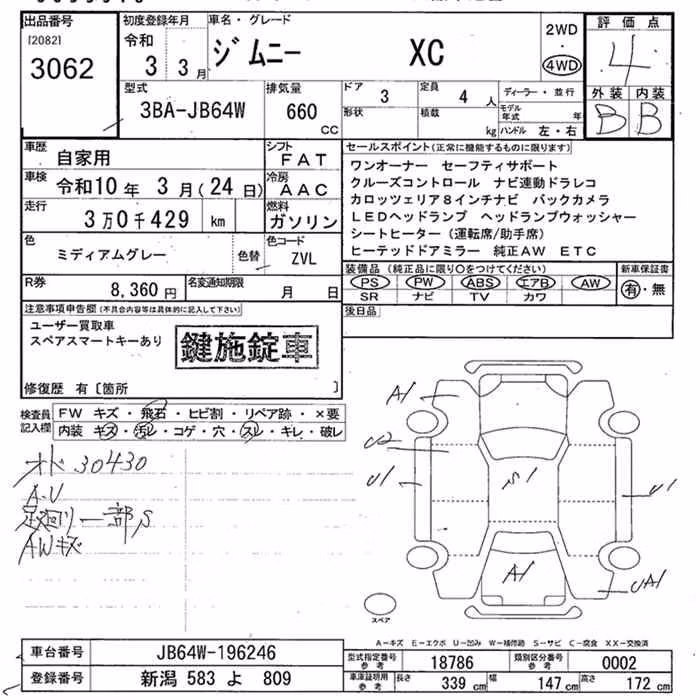 出品番号
[2082]
3062
初度登録年月
令和
3 3月
車名・グレード
ジムニー XC
2WD
・
4WD
評価点
4
外装 内装
B B
型式
3BA-JB64W
排気量
660
cc
ドア 3
定員 4 人
形状
積載 kg
ディーラー・並行
モデル年式 年
ハンドル 左・右
車歴 自家用
シフト FAT
車検 令和10年 3月(24日)
冷房 AAC
走行 3万0千429 km
燃料 ガソリン
色 ミディアムグレー
色替
色コード ZVL
R券 8,360円
名変通知期限 月 日
セールスポイント(正常に機能するものに限ります)
ワンオーナー セーフティサポート
クルーズコントロール ナビ連動ドラレコ
カロッツェリア8インチナビ バックカメラ
LEDヘッドランプ ヘッドランプウォッシャー
シートヒーター(運転席/助手席)
ヒーテッドドアミラー 純正AW ETC
装備品(純正品に限り○をつけてください)
PS PW ABS エアB AW
SR ナビ TV カワ
新車保証書
有・無
後日品
注意事項申告欄(不具合内容等は具体的に記入して下さい)
ユーザー買取車
スペアスマートキーあり
鍵施錠車
修復歴 有〔箇所 〕
検査員記入欄
FW キズ・飛石・ヒビ割・リペア跡・×要
内装 キズ・汚レ・コゲ・穴・スレ・キレ・破レ
オド30430
A.U
足廻り一部S
AWキズ
A1
U2
U1
S1
U1
A1
UA1
スペア
A-キズ E-エクボ U-凹み W-補修跡 S-サビ C-腐食 XX-交換済
車台番号 JB64W-196246
登録番号 新潟 583 よ 809
型式指定番号参考 18786
類別区分番号参考 0002
車庫証明用参考 長さ 339 cm 幅 147 cm 高さ 172 cm